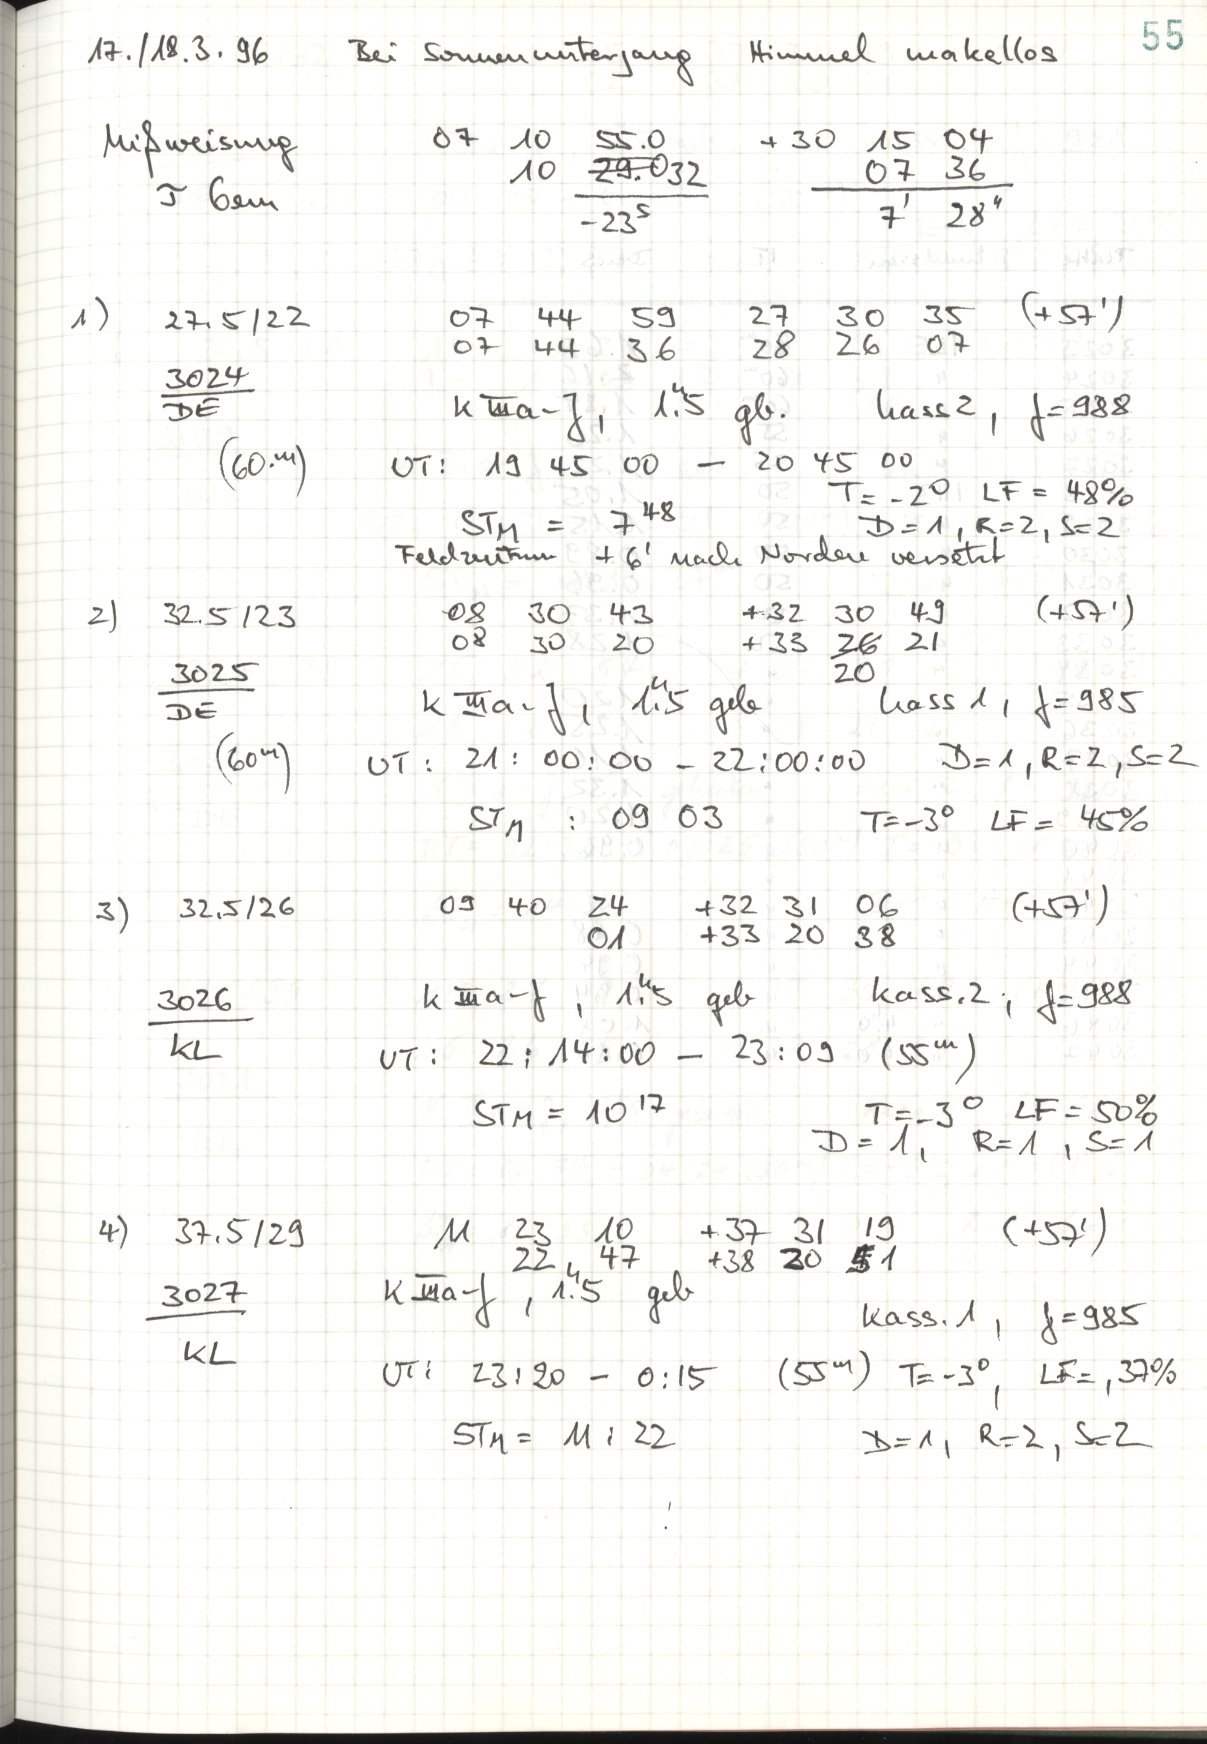 55
17./18.3.96 Bei Sonnenuntergang Himmel makellos
Mißweisung 07 10 55.0 +30 15 04
10 29.0 32 07 36
τ Gem -23ˢ 7' 28"
1) 27.5/22 07 44 59 27 30 35 (+57')
07 44 36 28 26 07
3024
DE
K IIIa-J, 1.ʰ5 gb. Kass 2, f=988
(60.ᵐ) UT: 19 45 00 – 20 45 00
T=-2° LF = 48%
STM = 7⁴⁸ D=1, R=2, S=2
Feldzentrum +6' nach Norden versetzt
2) 32.5/23 08 30 43 +32 30 49 (+57')
08 30 20 +33 26 21
20
3025
DE
K IIIa-J, 1.ʰ5 geb Kass 1, f=985
(60ᵐ) UT: 21:00:00 – 22:00:00 D=1, R=2, S=2
STM : 09 03 T=-3° LF = 45%
3) 32.5/26 09 40 24 +32 31 06 (+57')
01 +33 20 38
3026
KL
K IIIa-J, 1.ʰ5 geb Kass. 2, f=988
UT: 22:14:00 – 23:09 (55ᵐ)
STM = 10¹⁷ T=-3° LF = 50%
D=1, R=1, S=1
4) 37.5/29 11 23 10 +37 31 19 (+57')
22 47 +38 20 51
3027
KL
K IIIa-J, 1.ʰ5 geb
Kass. 1, f=985
UT: 23:20 – 0:15 (55ᵐ) T=-3°, LF=,37%
STM = 11:22 D=1, R=2, S=2